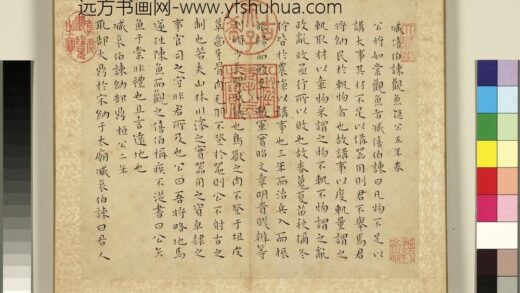 远方书画网-www.yfshuhua.com
臧僖伯諫觀魚 隱公五年春
公將如棠觀魚者臧僖伯諫曰凡物不足以
講大事其材不足以備器用則君不舉焉君
將納民於軌物者也故講事以度軌量謂之
軌取材以章物采謂之物不軌不物謂之亂
政亂政亟行所以敗也故春蒐夏苗秋獮冬
狩皆於農隙以講事也三年而治兵入而振
旅歸而飲至以數軍實昭文章明貴賤辨等
列順少長習威儀也鳥獸之肉不登于俎皮
革齒牙骨角毛羽不登於器則公不射古之
制也若夫山林川澤之實器用之資皁隸之
事官司之守非君所及也公曰吾將略地焉
遂往陳魚而觀之僖伯稱疾不從書曰公矢
魚于棠非禮也且言遠地也
臧哀伯諫納郜鼎 桓公二年
取郜大鼎於宋納于太廟臧哀伯諫曰君人